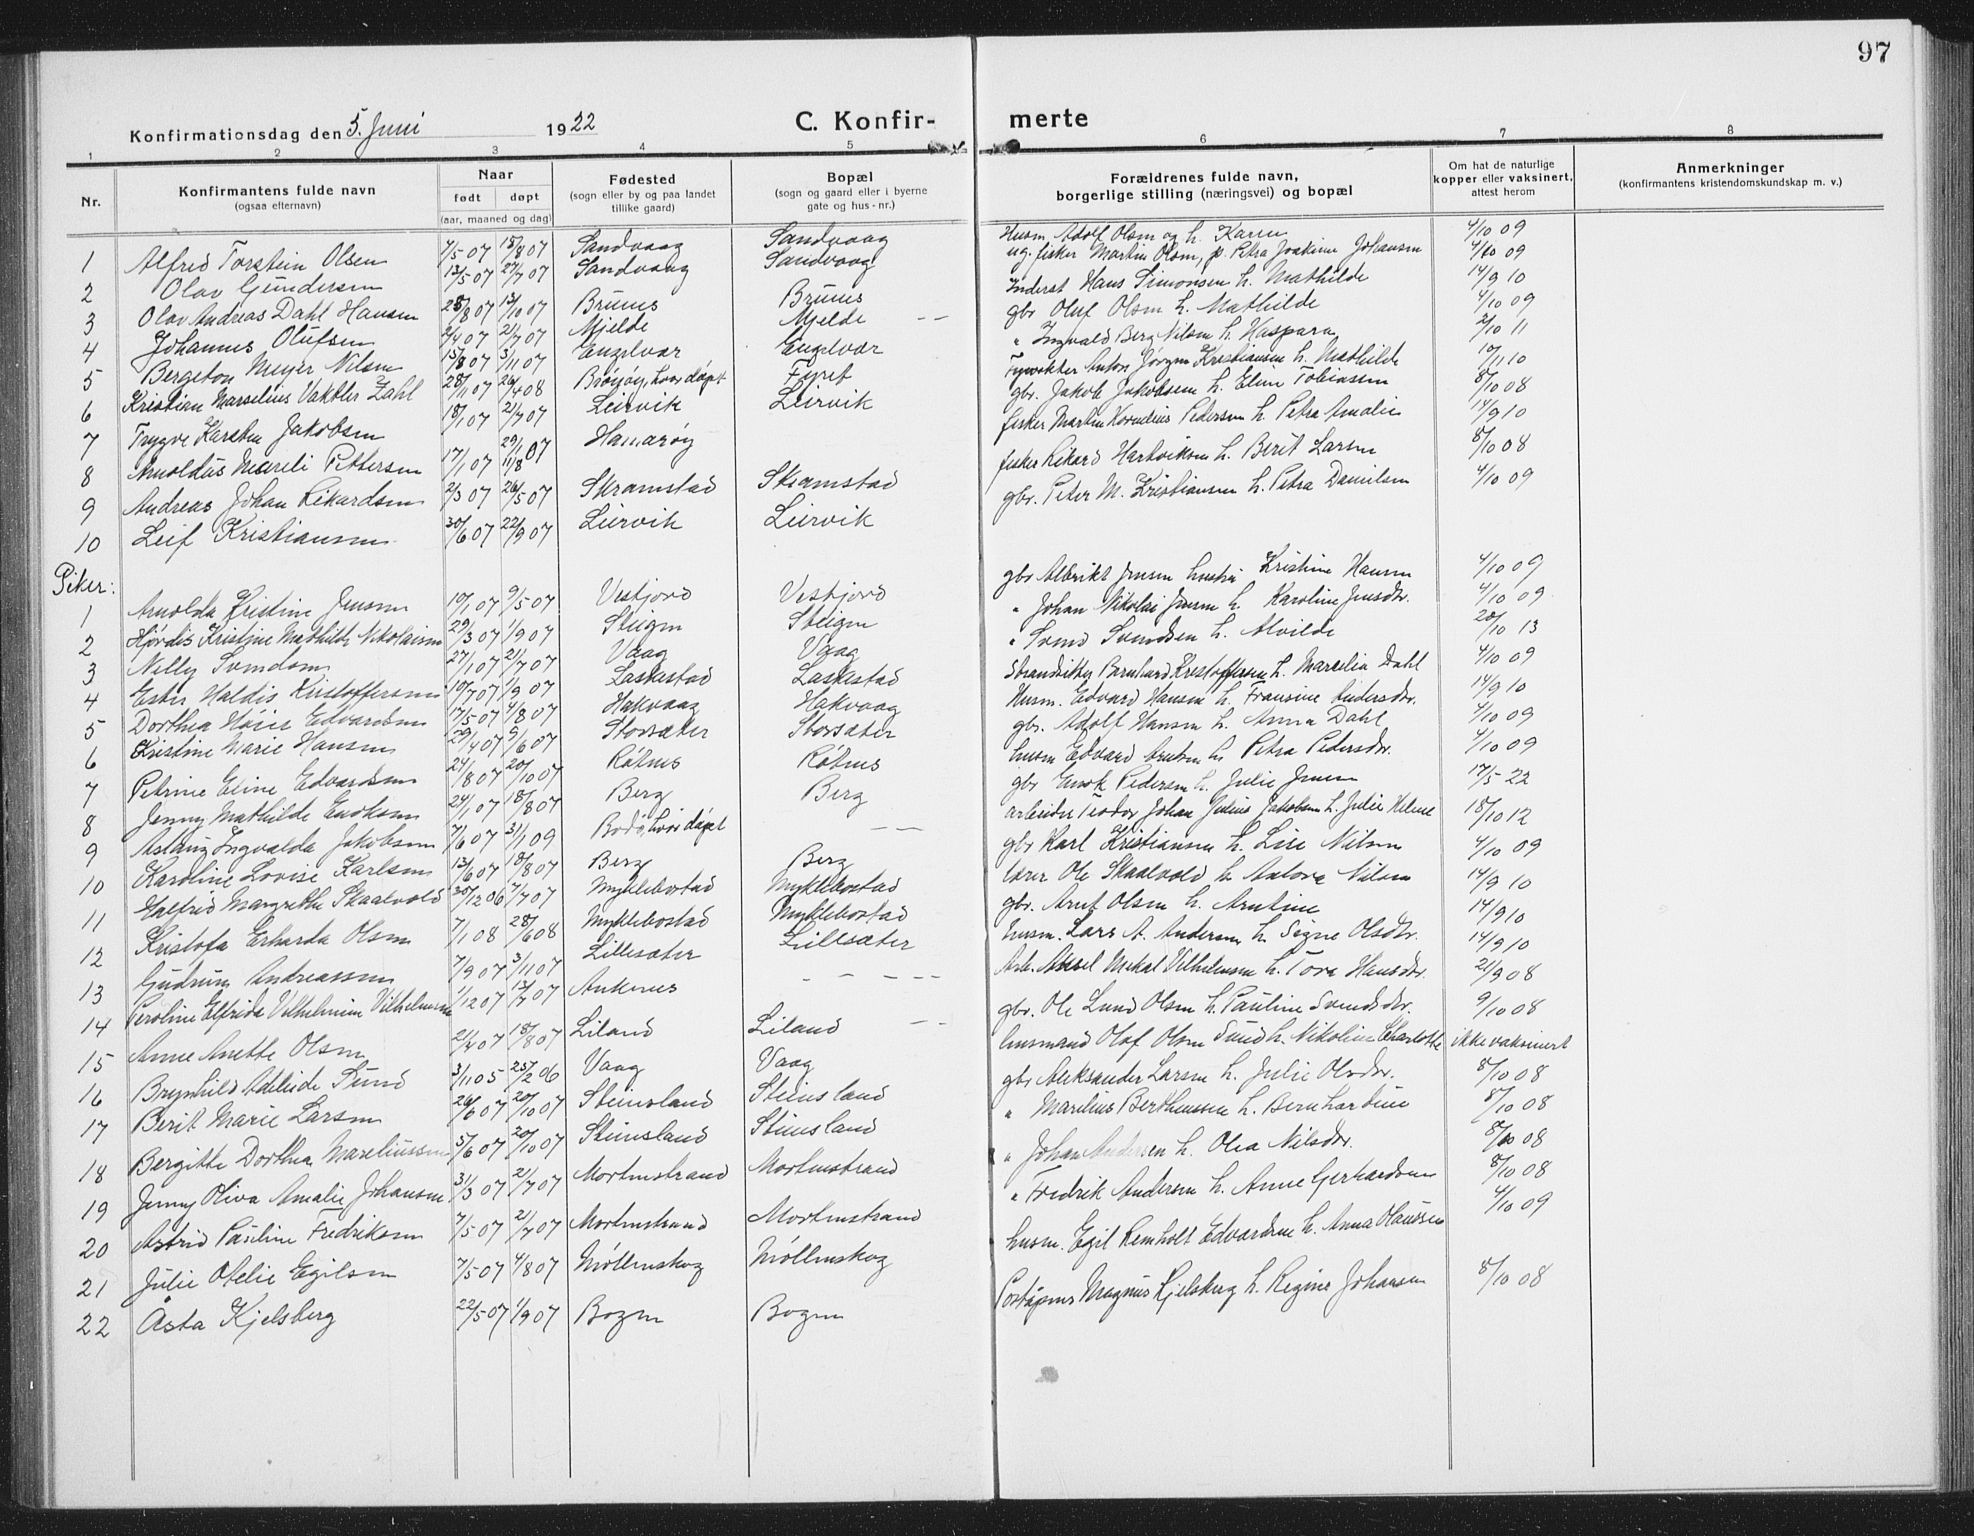 97
Konfirmationsdag den 5. Juni 1922 C. Konfirmerte
1 2 3 4 5 6 7 8
Nr. Konfirmantens fulde navn (ogsaa efternavn) Naar født døpt (aar, maaned og dag) Fødested (sogn eller by og paa landet tillike gaard) Bopæl (sogn og gaard eller i byerne gate og hus-nr.) Forældrenes fulde navn, borgerlige stilling (næringsvei) og bopæl Om hat de naturlige kopper eller vaksinert, attest herom Anmerkninger (konfirmantens kristendomskundskap m. v.)
1 Alfred Torstein Olsen 7/5 07 18/8 07 Sandvaag Sandvaag Husm. Adolf Olsen og h. Karen 4/10 09
2 Olav Gundersen 13/5 07 21/7 07 Sandvaag Sandvaag ug. fisker Martin Olsen, p. Petra Joakime Johansen 4/10 09
3 Olav Andreas Dahl Hansen 28/8 07 13/10 07 Brunes Brunes Inderst Hans Simonsen h. Mathilde 14/9 10
4 Johannes Olufsen 2/4 07 21/7 07 Mjelde Mjelde gbr Oluf Olsen h. Mathilde 4/10 09
5 Bergston Meyer Nilsen 15/8 07 3/11 07 Engelvær Engelvær " Ingvald Berg Nilsen h. Kaspara 2/10 11
6 Kristian Marselius Vaktler Zahl 28/11 07 26/4 08 Brøgøy, hvor døpt Fyret Fyrvokter Anton Jørgen Kristiansen h. Mathilde 10/11 10
7 Trygve Karsten Jakobsen 18/1 07 21/7 07 Leirvik Leirvik gbr. Jakob Jakobsen h. Eline Tobiassen 8/10 08
8 Arnoldus Mareli Pettersen 17/1 07 29/1 07 11/8 Hamarøy fisker Martin Kornelius Pedersen h. Petra Amalie 14/9 10
9 Andreas Johan Rikardsen 2/3 07 26/5 07 Skramstad Skramstad fisker Rikard Hartviksen h. Berit Larsen 8/10 08
10 Leif Kristiansen 30/6 07 22/9 07 Leirvik Leirvik gbr. Peter M. Kristiansen h. Petra Danielsen 4/10 09
Piker:
1 Arnolda Kristine Jensen 19/1 07 9/5 07 Vestfjord Vestfjord gbr Albrikt Jensen hustru Kristine Hansen 4/10 09
2 Hjørdis Kristine Mathilde Nikolaisen 29/3 07 1/9 07 Steigen Steigen " Johan Nikolai Jensen h. Karoline Jensdtr. 4/10 09
3 Nelly Svendsen 27/1 07 21/7 07 Vaag Vaag " Svend Svendsen h. Alvilde 20/10 13
4 Ester Haldis Kristoffersen 19/7 07 1/9 07 Laskestad Laskestad Strandsitter Bernhard Kristoffersen h. Marselia Dahl 4/10 09
5 Dorthea Høier Edvardsen 17/5 07 4/8 07 Hakvaag Hakvaag Husm. Edvard Hansen h. Fransine Andersdtr. 14/9 10
6 Kristine Marie Hansen 29/4 07 9/6 07 Storsæter Storsæter gbr. Adolf Hansen h. Anna Dahl 4/10 09
7 Petrine Eline Edvardsen 24/8 07 20/10 07 Røtnes Røtnes husm Edvard Arntsen h. Petra Pedersdtr. 4/10 09
8 Jenny Mathilde Enoksen 24/1 07 18/8 07 Berg Berg gbr Enok Pedersen h. Julie Jensen 17/5 22
9 Aslaug Ingvalda Jakobsen 7/6 07 31/1 09 Bodø, hvor døpt — — arbeider Teodor Johan Julius Jakobsen h. Julie Helene 18/10 12
10 Karoline Lovise Karlsen 13/6 07 18/8 07 Berg Berg gbr Karl Kristiansen h. Lise Nilsen 4/10 09
11 Halfrid Margrethe Skaalvold 30/12 06 7/7 07 Myklebostad Myklebostad lærer Ole Skaalvold h. Antora Nilsen 14/9 10
12 Kristofa Erharda Olsen 7/1 08 28/6 08 Myklebostad Myklebostad gbr. Arnt Olsen h. Arntine 14/9 10
13 Gudrun Andreassen 7/9 07 3/11 07 Lillesæter Lillesæter husm. Lars A. Andersen h. Signe Olsdtr. 14/9 10
14 Peroline Elfrida Vilhelmine Vilhelmsen 1/12 07 13/7 07 Ankenes — — — Arb. Aksel Mekal Vilhelmsen h. Tora Hansdtr. 21/9 08
15 Anne Anette Olsen 2/4 07 18/8 07 Liland Liland — — gbr. Ole Lund Olsen h. Pauline Svendsdtr. 9/10 08
16 Brynhild Adeleide Sund 3/11 05 25/2 06 Vaag Vaag husmand Olaf Olsen Sund h. Nikoline Charlotte ikke vaksinert
17 Berit Marie Larsen 26/6 07 20/10 07 Steinsland Steinsland gbr Aleksander Larsen h. Julie Olsdtr. 8/10 08
18 Bergitte Dorthea Mareliussen 5/6 07 20/10 07 Steinsland Steinsland " Marelius Bertheussen h. Bernhardine 8/10 08
19 Jenny Oliva Amalie Johansen 31/3 07 21/7 07 Mortenstrand Mortenstrand " Johan Andersen h. Olea Nilsdtr. 8/10 08
20 Astrid Pauline Fredriksen 7/5 07 21/7 07 Mortenstrand Mortenstrand " Fredrik Andersen h. Anne Gerhardsen 8/10 08
21 Julie Otelie Egilsen 7/5 07 4/8 07 Møllenskog Møllenskog husm. Egil Remholt Edvardsen h. Anna Olaussen 4/10 09
22 Åsta Kjelsberg 22/5 07 1/9 07 Bogen Bogen Poståpner Magnus Kjelsberg h. Regine Johansen 8/10 08